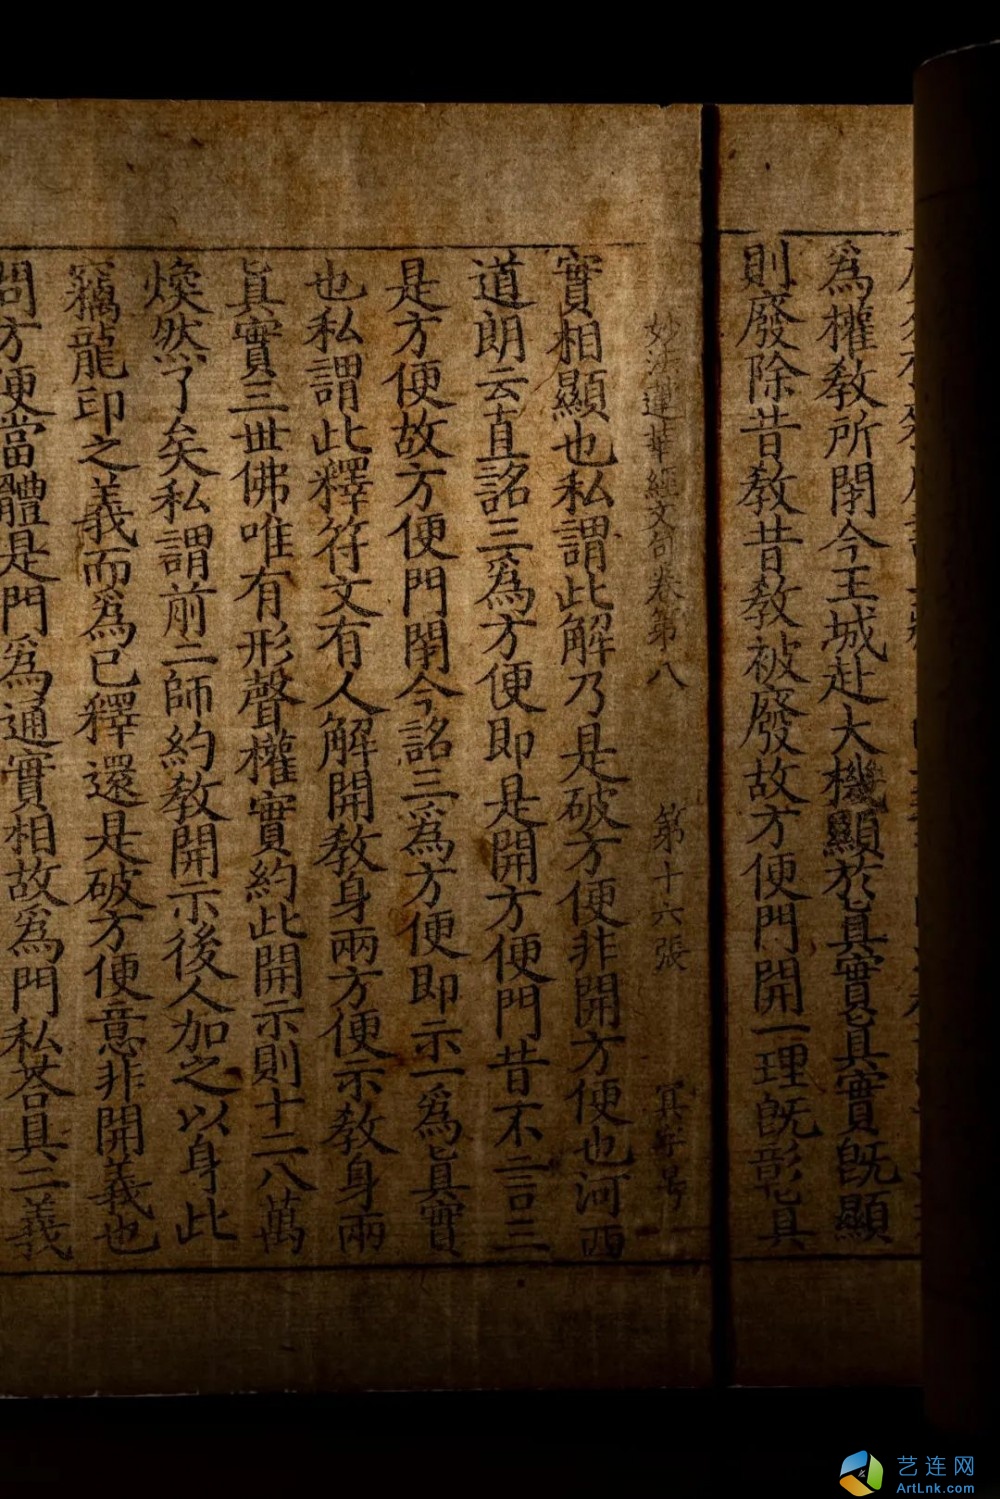 為權教所閇今王城赴大機顯於真實真實旣顯
則廢除昔教昔教被廢故方便門開一理旣彰具
妙法蓮華經文句卷第八 第十六張
實相顯也私謂此解乃是破方便非開方便也河西
道朗云直詺三為方便即是開方便門昔不言三
是方便故方便門閇今詺三為方便即示一為真實
也私謂此釋符文有人解開教身兩方便示教身兩
真實三世佛唯有形聲權實約此開示則十二八萬
煥然了矣私謂前二師約教開示後人加之以身此
竊龍印之義而為已釋還是破方便意非開義也
問方便當體是門為通實相故為門私荅具二義
艺连网
ArtLnk.com